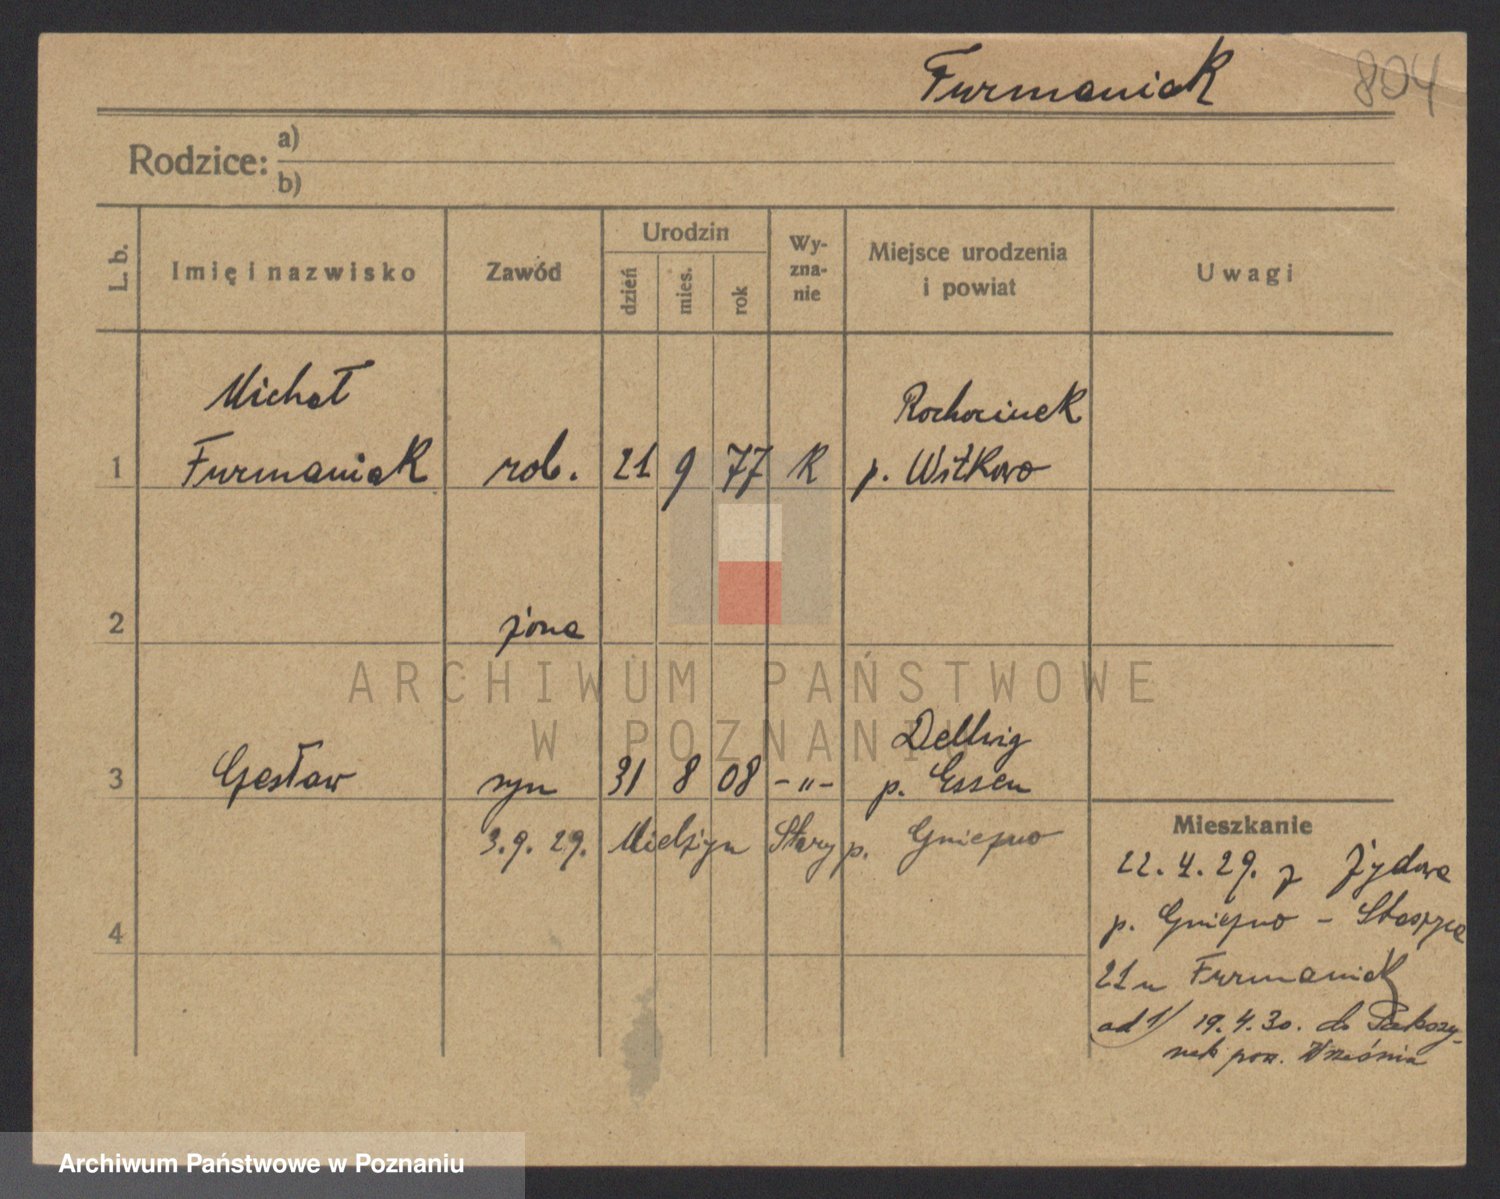 Furmaniak 804
Rodzice: a)
b)
L. b. Imię i nazwisko Zawód Urodzin dzień mies. rok Wy-zna-nie Miejsce urodzenia i powiat Uwagi
Michał Rochocinek
1 Furmaniak rob. 21 9 77 K p. Witkowo
2 żona
ARCHIWUM PAŃSTWOWE
W POZNANIU
Dellwig
3 Czesław syn 31 8 08 -„- p. Essen
3.9.29. Mielżyn Stary p. Gniezno
4
Mieszkanie
22.4.29. z Żydowa
p. Gniezno -
21 u Furmaniak
ad 1/ 19.4.30. do
pow. Września
Archiwum Państwowe w Poznaniu